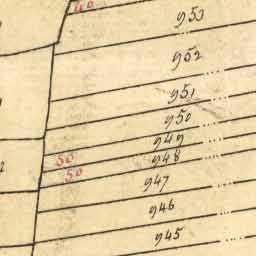 953
952
951
950
949
50
948
50
947
946
945